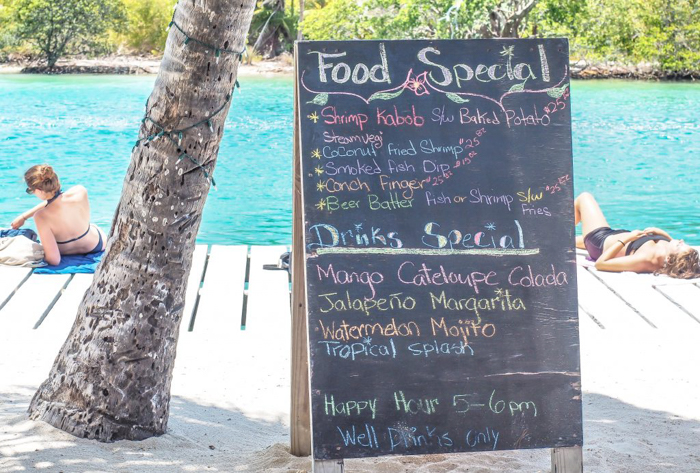 Food Special
Shrimp Kabob S/w Baked Potato
Steam Vegi
Coconut fried Shrimp
Smoked fish Dip
Conch Finger
Beer Batter Fish or Shrimp S/w
Fries
Drinks Special
Mango Cateloupe Colada
Jalapeño Margarita
Watermelon Mojito
Tropical splash
Happy Hour 5-6pm
Well Drinks only